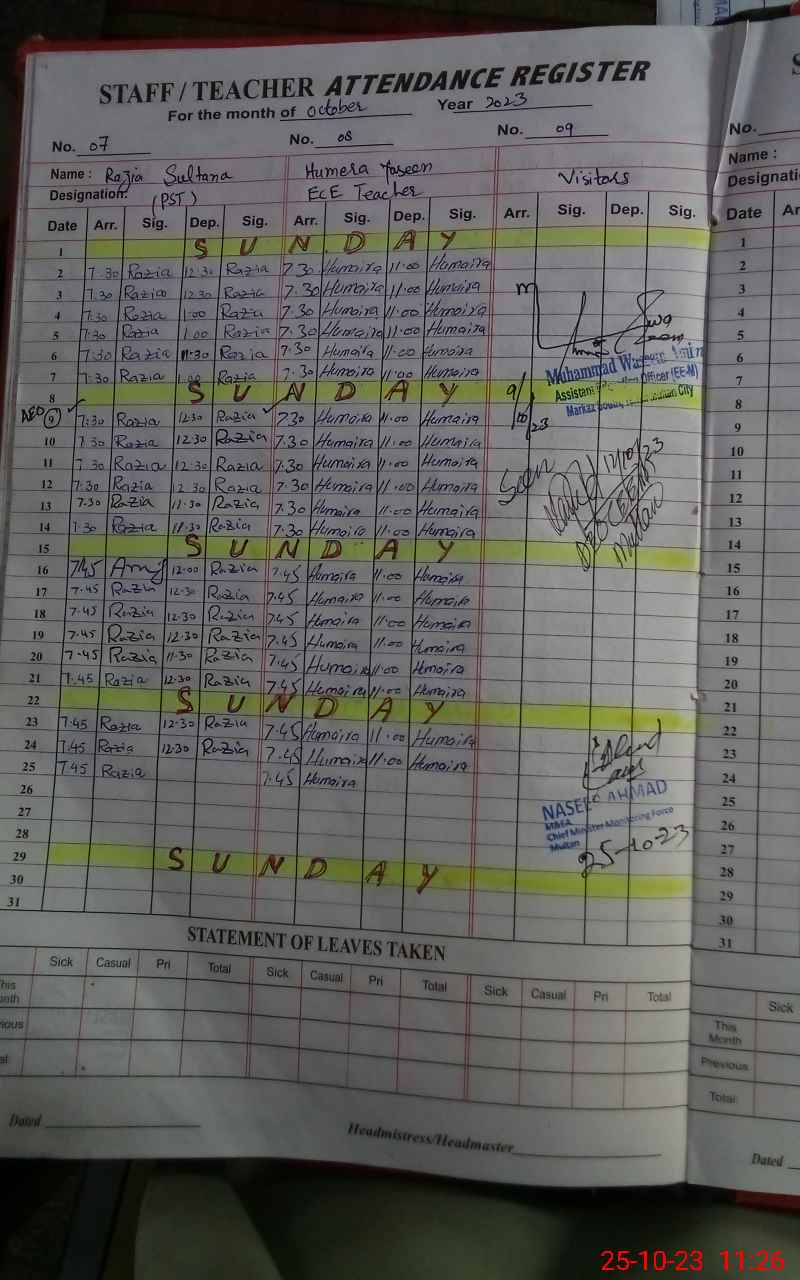 STAFF / TEACHER ATTENDANCE REGISTER
For the month of October Year 2023
No. 07 No. 08 No. 09 No.
Name : Razia Sultana Humera Yaseen Visitors Name :
Designation: (PST) ECE Teacher
Date Arr. Sig. Dep. Sig. Arr. Sig. Dep. Sig. Arr. Sig. Dep. Sig. Date
1 SUNDAY 1
2 7.30 Razia 12.30 Razia 7.30 Humaira 11.00 Humaira 2
3 7.30 Razia 12.30 Razia 7.30 Humaira 11.00 Humaira 3
4 7.30 Razia 1.00 Razia 7.30 Humaira 11.00 Humaira 4
5 7.30 Razia 1.00 Razia 7.30 Humaira 11.00 Humaira 5
6 7.30 Razia 11.30 Razia 7.30 Humaira 11.00 Humaira 6
7 7.30 Razia 1.00 Razia 7.30 Humaira 11.00 Humaira 7
Muhammad Waseem
Officer (EE-M)
8 SUNDAY 9/10/23 8
AEO 9 7:30 Razia 12.30 Razia 7.30 Humaira 11.00 Humaira 9
10 7.30 Razia 12.30 Razia 7.30 Humaira 11.00 Humaira 10
11 7.30 Razia 12.30 Razia 7.30 Humaira 11.00 Humaira Seen 12/10/23 11
12 7.30 Razia 12.30 Razia 7.30 Humaira 11.00 Humaira 12
13 7.30 Razia 11.30 Razia 7.30 Humaira 11.00 Humaira 13
14 7.30 Razia 11.30 Razia 7.30 Humaira 11.00 Humaira Multan 14
15 SUNDAY 15
16 7.45 12.00 Razia 7.45 Humaira 11.00 Humaira 16
17 7.45 Razia 12.30 Razia 7.45 Humaira 11.00 Humaira 17
18 7.45 Razia 12.30 Razia 7.45 Humaira 11.00 Humaira 18
19 7.45 Razia 12.30 Razia 7.45 Humaira 11.00 Humaira 19
20 7.45 Razia 11.30 Razia 7.45 Humaira 11.00 Humaira 20
21 7.45 Razia 12.30 Razia 7.45 Humaira 11.00 Humaira 21
22 SUNDAY 22
23 7.45 Razia 12.30 Razia 7.45 Humaira 11.00 Humaira 23
24 7.45 Razia 12.30 Razia 7.45 Humaira 11.00 Humaira 24
25 7.45 Razia 7.45 Humaira 25
26 26
NASEER AHMAD
MEA
Chief Minister Monitoring Force
Multan
25-10-23
27 27
28 28
29 SUNDAY 29
30 30
31 31
STATEMENT OF LEAVES TAKEN
Sick Casual Pri Total Sick Casual Pri Total Sick Casual Pri Total Sick
This Month
Previous
Total:
Dated Headmistress/Headmaster Dated
25-10-23 11:26